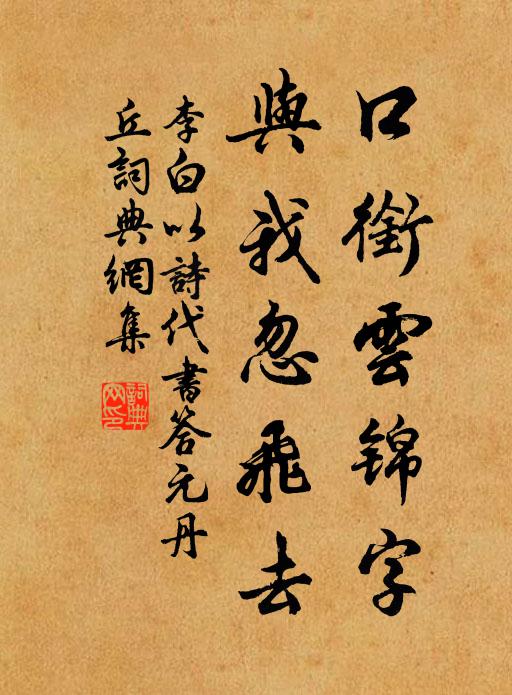 口銜雲锦字
與我忽飛去
李白以詩代書答元丹
丘詞典網集
詞典
网印